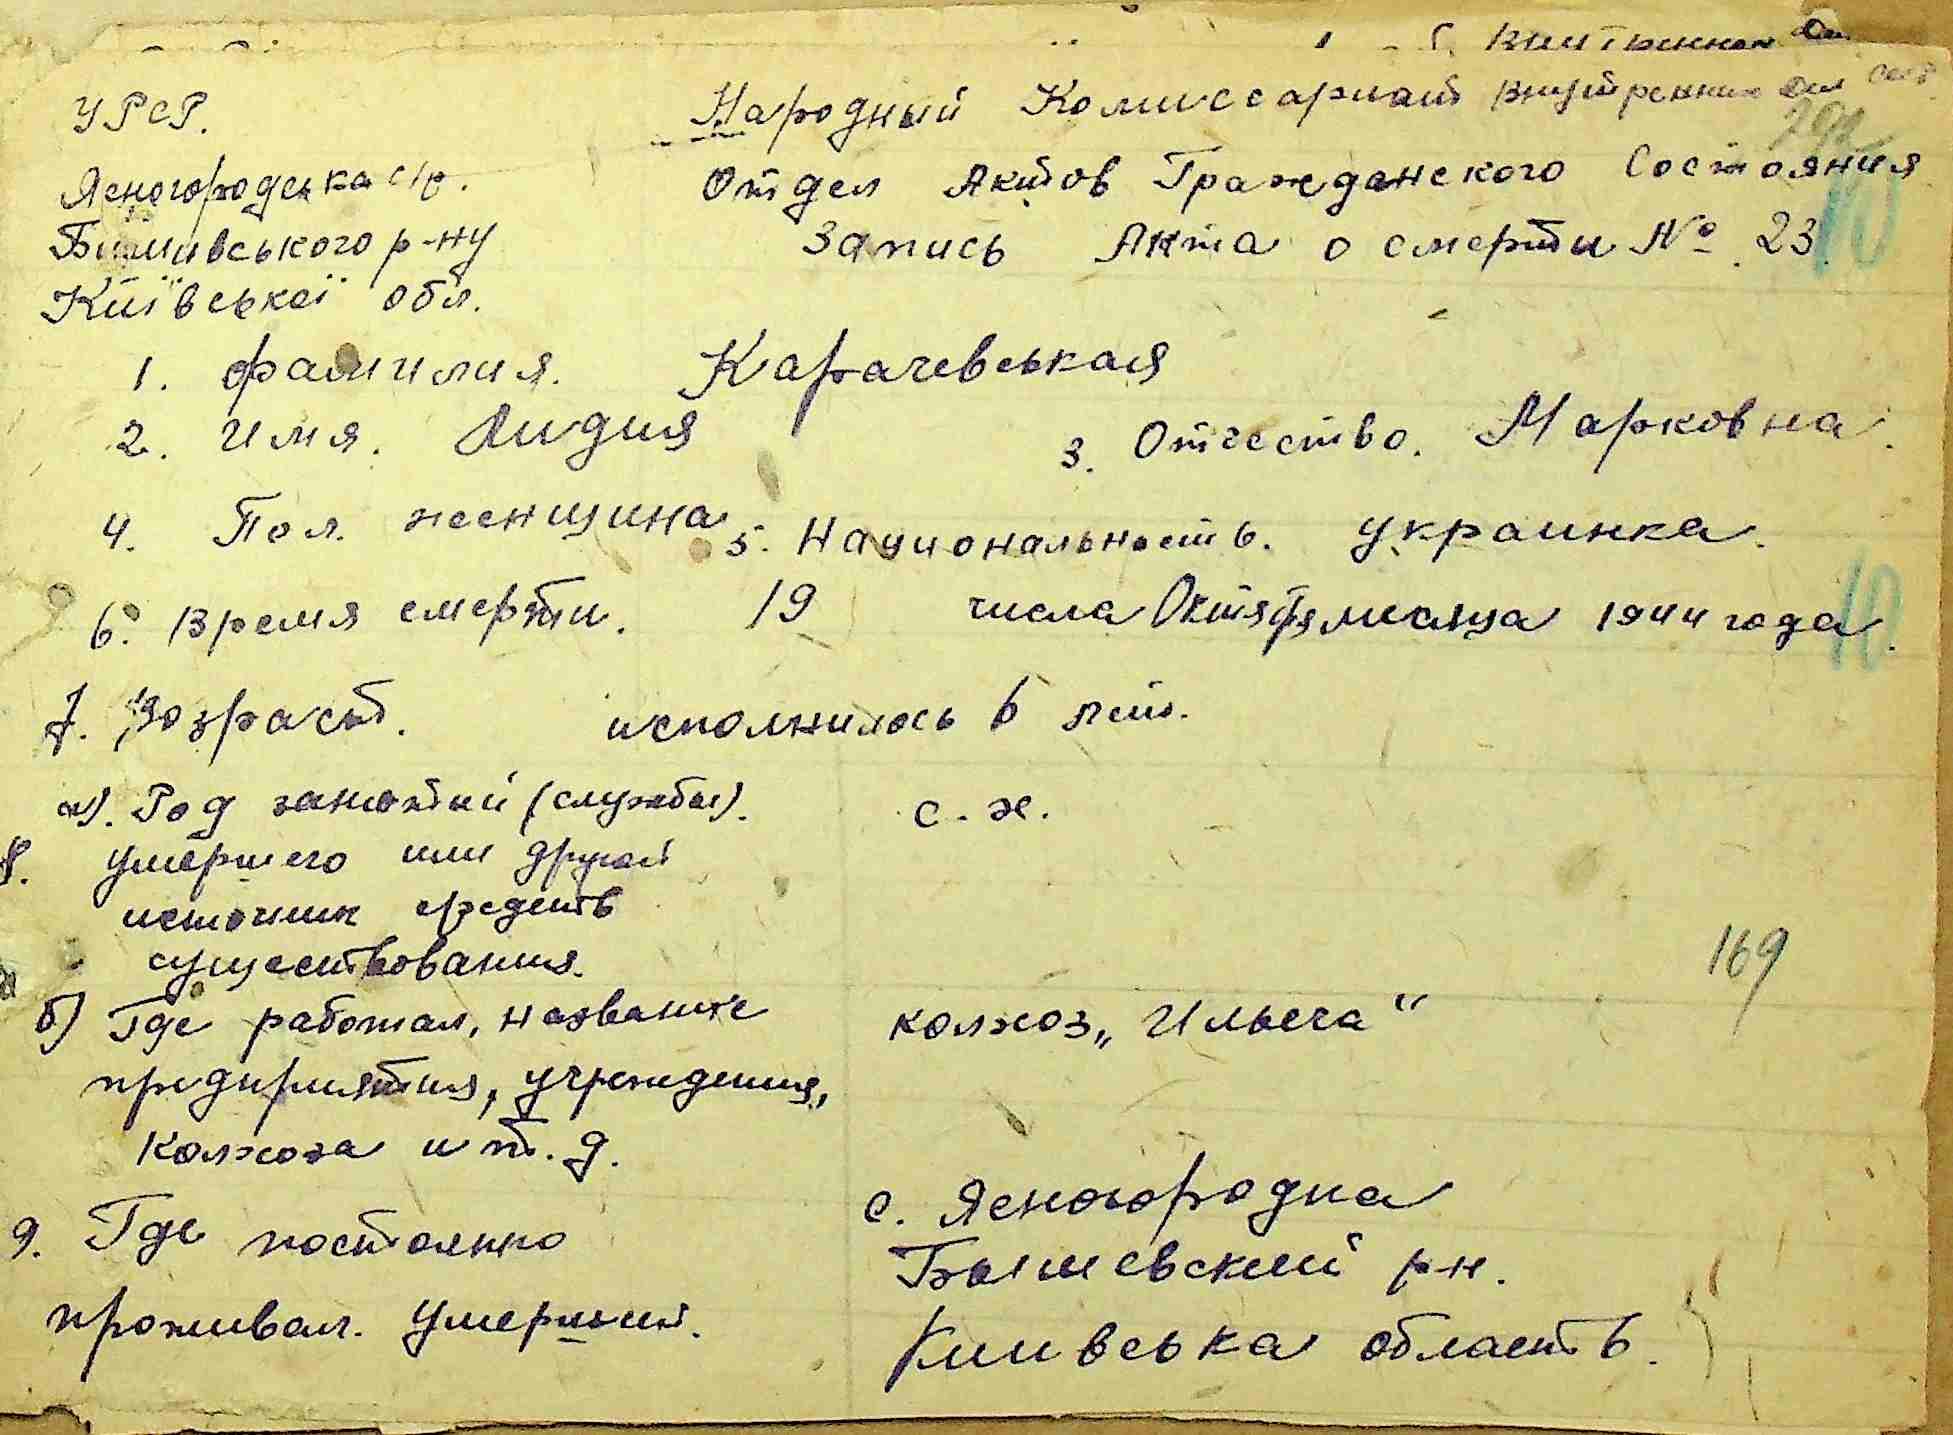 УРСР.
Народный Комиссариат Внутренних Дел
Ясногородська с/р.
Отдел Актов Гражданского Состояния
Бишивського р-ну
Запись Акта о смерти № 23
Київської обл.
1. Фамилия. Карачевськая
2. Имя. Лидия 3. Отчество. Марковна.
4. Пол. женщина 5. Национальность. украинка.
6. Время смерти. 19 числа Октября месяца 1944 года.
7. Возраст. исполнилось 6 лет.
а). Род занятий (службы). с.-х.
8. умершего или другой
источник средств
существования.
169
б) Где работал, название колхоз „Ильеча“
предприятия, учреждения,
колхоза и т. д.
9. Где постоянно с. Ясногородка
Бышевский р-н.
проживал. умерший. Киивська область.